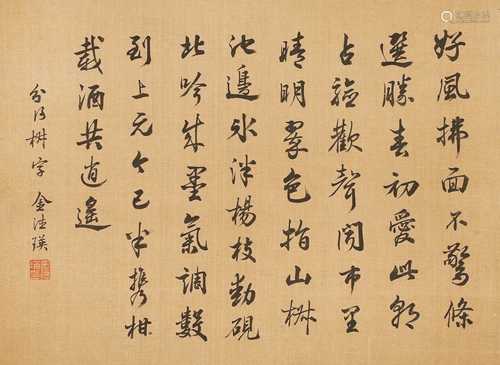 好風拂面不驚條
選勝春初愛此朝
占驗歡聲聞市里
晴明翠色指山椒
池邊冰泮楊枝動硯
北吟成墨氣調數
到上元今已半携柑
載酒共逍遙
分得椒字 金德瑛